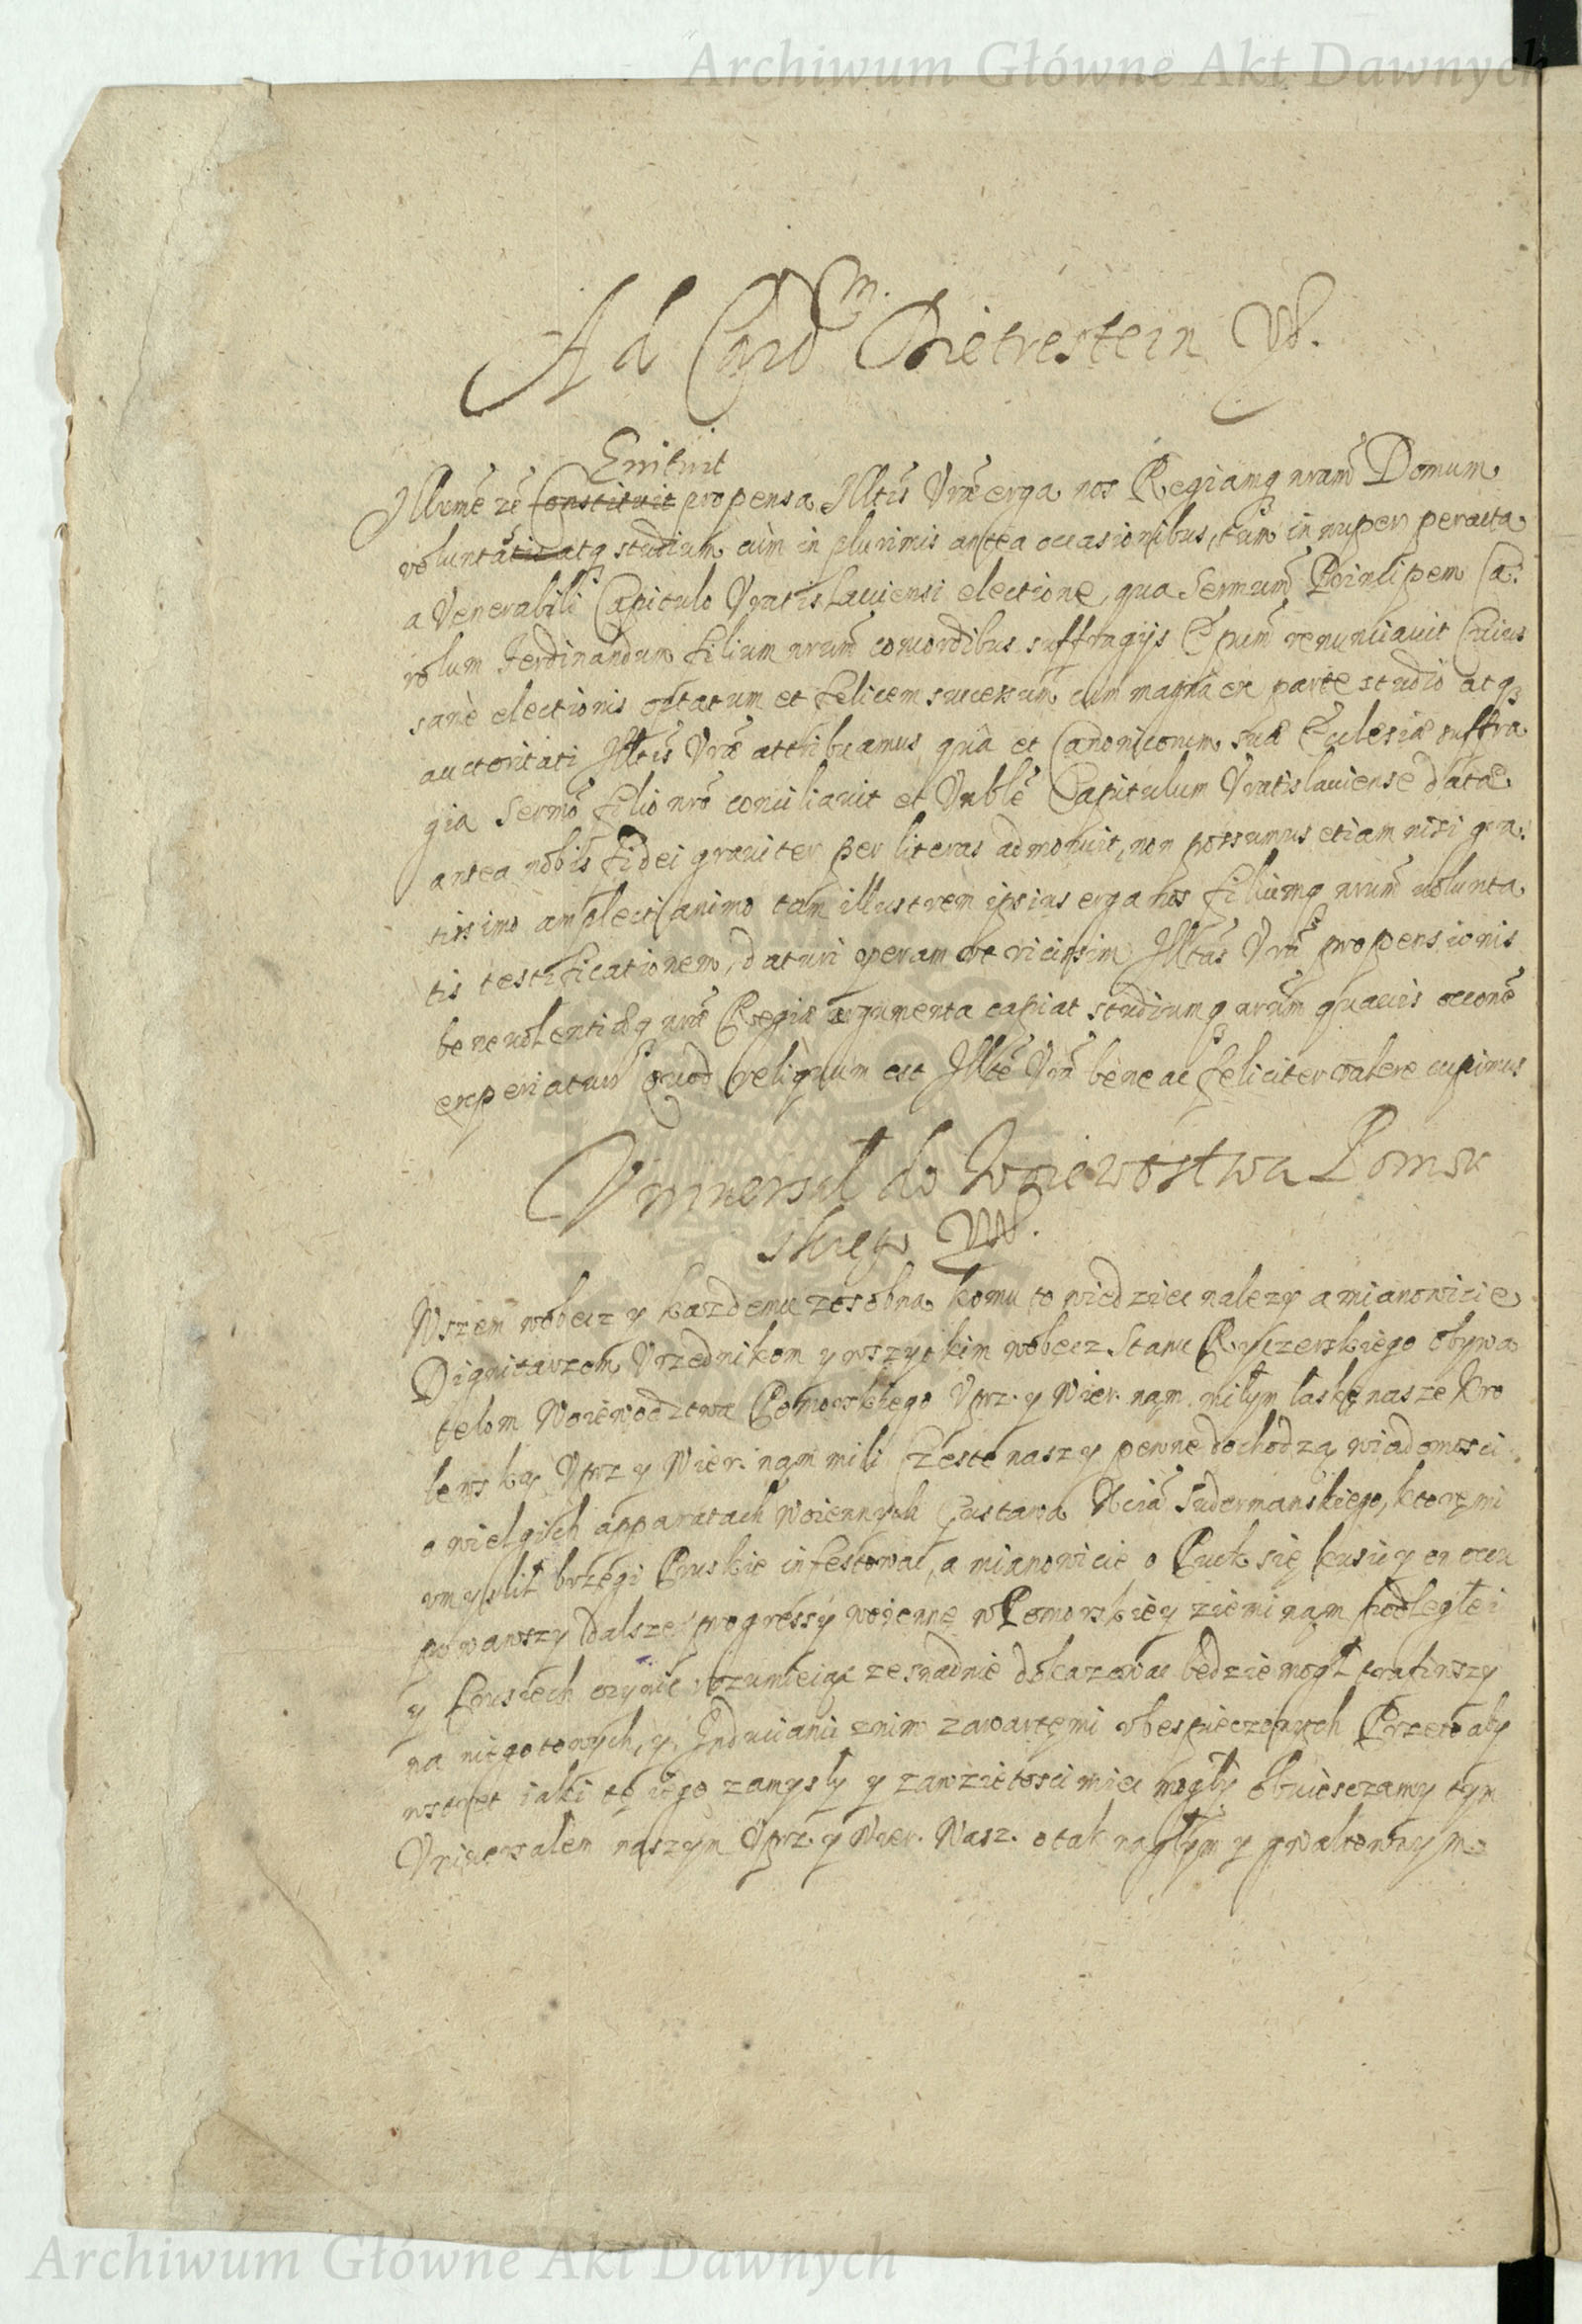 Archiwum Główne Akt Dawnych
Ad Card m. Dietrestein W.
Enituit
Illrme re Constituit propensa Illtis Vrae erga nos Regiamq nram Domum
voluntatis atq studium cum in plurimis antea occasionibus, tum in nuper peracta
a Venerabili Capitulo Vratislauiensi electione, qua Sermum Principem Ca:
rolum Ferdinandum filium nrum concordibus suffragijs Epum renunciauit Cuius
sane electionis optatum et felicem successum cum magna ex parte studio atq
auctoritati Illtis Vrae attribuamus qua et Canonicorum suae Ecclesiae suffra
gia Sermo filio nro conciliauit et Vnble Capitulum Vratislauiense datae
antea nobis fidei grauiter per literas admonuit, non possumus etiam nisi gra:
tissimo amplecti animo tam illustrem ipsius erga nos filiumq nrum uolunta
tis testificationem, daturi operam vt vicissim Illtas Vra propensionis
beneuolentiaeq nrae Regiae argumenta capiat studiumq nrum quauis occone
experiatur Quod reliquum est Illte Vra bene ac feliciter valere cupimus
Vniuersał do Woiewostwa Pomor
skiego W.
Wszem wobecz y kazdemu zosobna komu to wiedziec nalezy a mianowicie
Dignitarzom Vrzednikom y wszytkim wobecz Stanu Ryczerskiego obywa
telom Woiewodztwa Pomorskiego Vprz. y Wier. nąm miłym łaskę nasze Kro
lewską Vprz y Wier. nąm mili Częste naszy pewne dochodzą wiadomosci
o wielgich apparatach woiennych Gustawa Xcia Sudermanskiego, ktoremi
vmyslił brzegi Pruskie infestowac, a mianowicie o Puck się kusic y on occu
powawszy dalsze progressy woienne w Pomorskiey ziemi nąm podległei
y Prusiech czynic rozumieiąc ze snadnie dokazowac będzie mogł trafiwszy
na niegotowych, y Induciami znim zawartemi vbespieczonych Przetoaby
wstręt iaki te iego zamysły y zawziętosci miec mogły obwiesczamy tym
Vniuersałem naszym Vprz. y Wier. Wasz. o tak nagłym y gwałtownym
Archiwum Główne Akt Dawnych